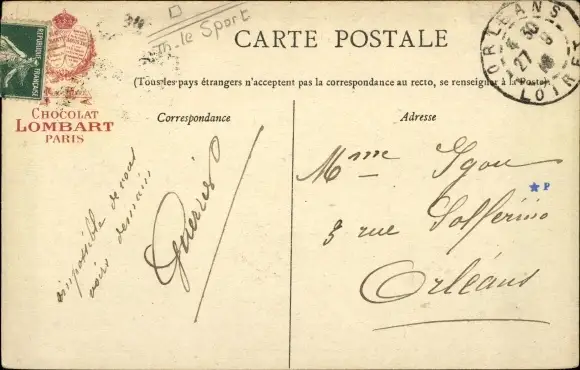 Th. le Sport
CARTE POSTALE
(Tous les pays étrangers n'acceptent pas la correspondance au recto, se renseigner à la Poste)
REPUBLIQUE FRANÇAISE
CHOCOLAT
LOMBART
PARIS
Correspondance
impossible de vous
voir demain
Adresse
Mme
3 rue Solferino
Orléans
P
ORLEANS
27
LOIRET